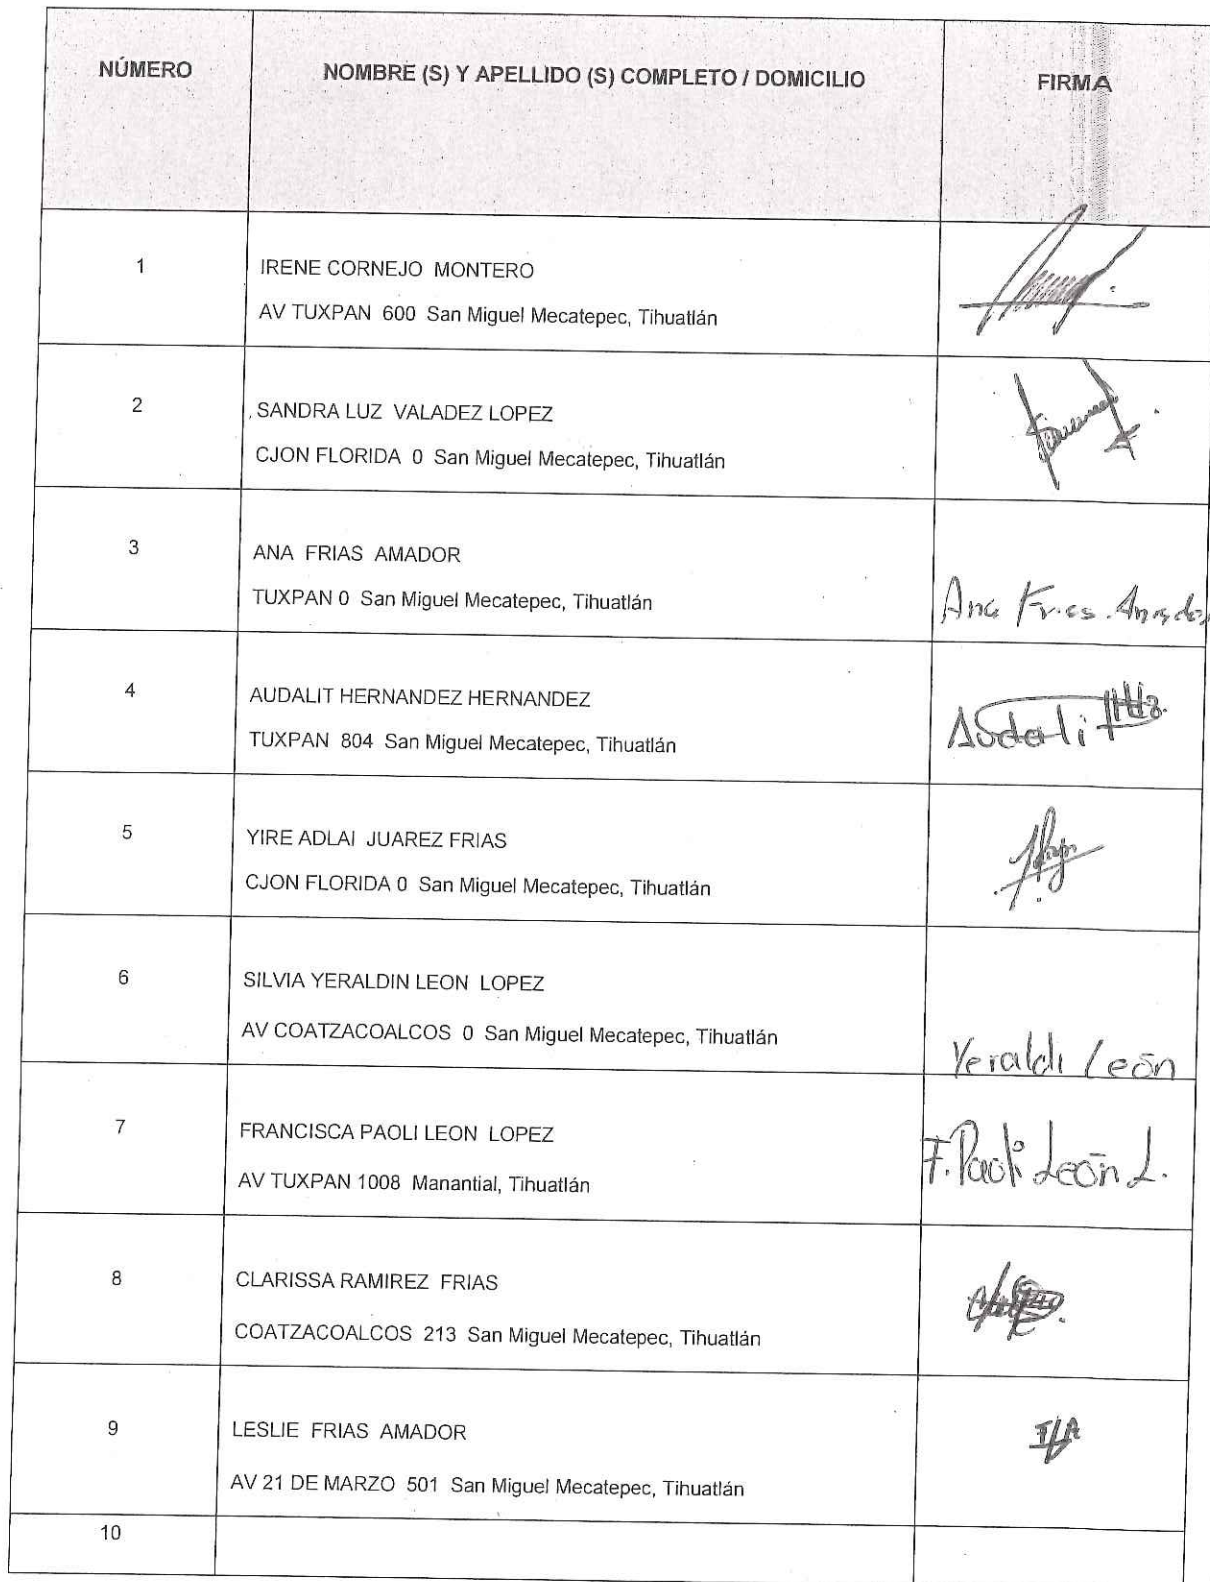 NÚMERO NOMBRE (S) Y APELLIDO (S) COMPLETO / DOMICILIO FIRMA
1 IRENE CORNEJO MONTERO
AV TUXPAN 600 San Miguel Mecatepec, Tihuatlán
2 SANDRA LUZ VALADEZ LOPEZ
CJON FLORIDA 0 San Miguel Mecatepec, Tihuatlán
3 ANA FRIAS AMADOR
TUXPAN 0 San Miguel Mecatepec, Tihuatlán Ana Frias. Amador
4 AUDALIT HERNANDEZ HERNANDEZ
TUXPAN 804 San Miguel Mecatepec, Tihuatlán
5 YIRE ADLAI JUAREZ FRIAS
CJON FLORIDA 0 San Miguel Mecatepec, Tihuatlán
6 SILVIA YERALDIN LEON LOPEZ
AV COATZACOALCOS 0 San Miguel Mecatepec, Tihuatlán Yeraldi León
7 FRANCISCA PAOLI LEON LOPEZ F. Paoli León L.
AV TUXPAN 1008 Manantial, Tihuatlán
8 CLARISSA RAMIREZ FRIAS
COATZACOALCOS 213 San Miguel Mecatepec, Tihuatlán
9 LESLIE FRIAS AMADOR
AV 21 DE MARZO 501 San Miguel Mecatepec, Tihuatlán
10